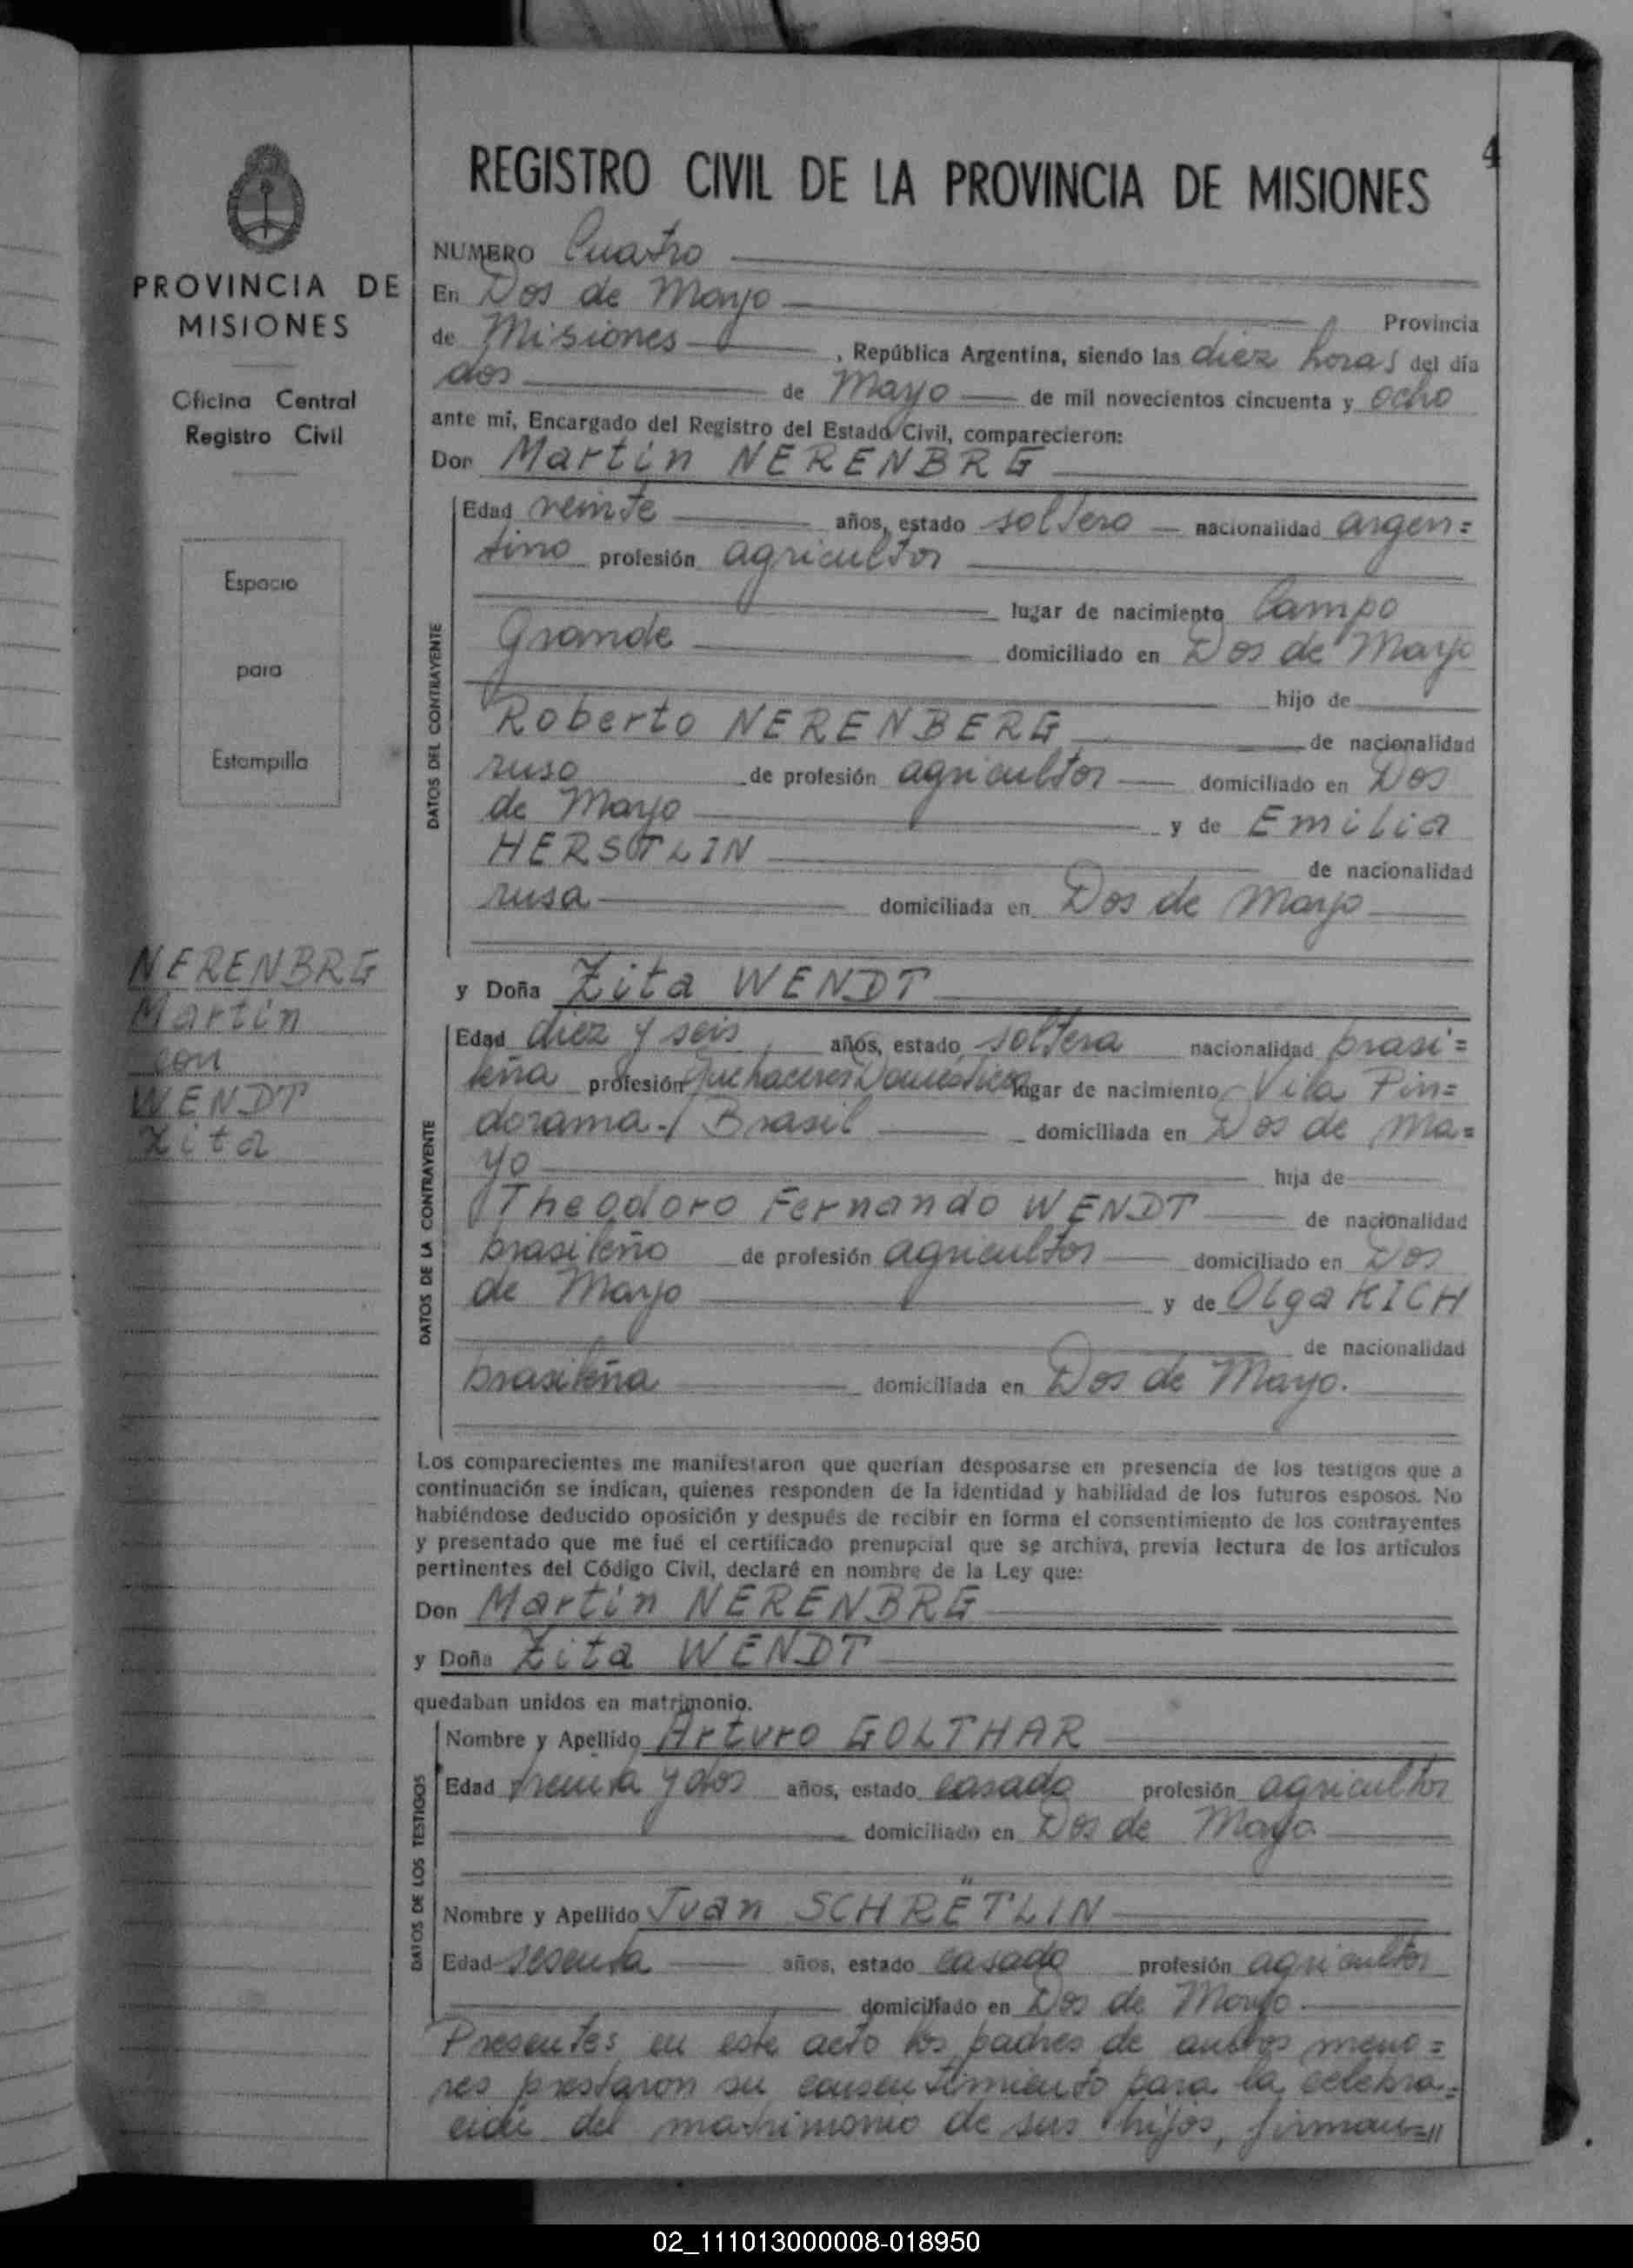 4
REGISTRO CIVIL DE LA PROVINCIA DE MISIONES
PROVINCIA DE
MISIONES
Oficina Central
Registro Civil
Espacio
para
Estampilla
NERENBRG
Martín
con
WENDT
Zita
NUMERO Cuatro
En Dos de Mayo Provincia
de Misiones, República Argentina, siendo las diez horas del día
dos de Mayo de mil novecientos cincuenta y ocho
ante mí, Encargado del Registro del Estado Civil, comparecieron:
Don Martín NERENBRG
DATOS DEL CONTRAYENTE
Edad veinte años, estado soltero nacionalidad argen=
tino profesión agricultor
lugar de nacimiento Campo
Grande domiciliado en Dos de Mayo
hijo de
Roberto NERENBERG de nacionalidad
ruso de profesión agricultor domiciliado en Dos
de Mayo y de Emilia
HERSTLIN de nacionalidad
rusa domiciliada en Dos de Mayo
y Doña Zita WENDT
DATOS DE LA CONTRAYENTE
Edad diez y seis años, estado soltera nacionalidad brasi=
leña profesión Quehaceres Domésticos lugar de nacimiento Vila Pin=
dorama-/Brasil domiciliada en Dos de Ma=
yo hija de
Theodoro Fernando WENDT de nacionalidad
brasileño de profesión agricultor domiciliado en Dos
de Mayo y de Olga KICH
de nacionalidad
brasileña domiciliada en Dos de Mayo.
Los comparecientes me manifestaron que querían desposarse en presencia de los testigos que a
continuación se indican, quienes responden de la identidad y habilidad de los futuros esposos. No
habiéndose deducido oposición y después de recibir en forma el consentimiento de los contrayentes
y presentado que me fué el certificado prenupcial que se archiva, previa lectura de los artículos
pertinentes del Código Civil, declaré en nombre de la Ley que:
Don Martín NERENBRG
y Doña Zita WENDT
quedaban unidos en matrimonio.
DATOS DE LOS TESTIGOS
Nombre y Apellido Arturo GOLTHAR
Edad treinta y dos años, estado casado profesión agricultor
domiciliado en Dos de Mayo
Nombre y Apellido Juan SCHRËTLIN
Edad sesenta años, estado casado profesión agricultor
domiciliado en Dos de Mayo.
Presentes en este acto los padres de ambos meno=
res prestaron su consentimiento para la celebra=
ción del matrimonio de sus hijos, firman=//
02_111013000008-018950